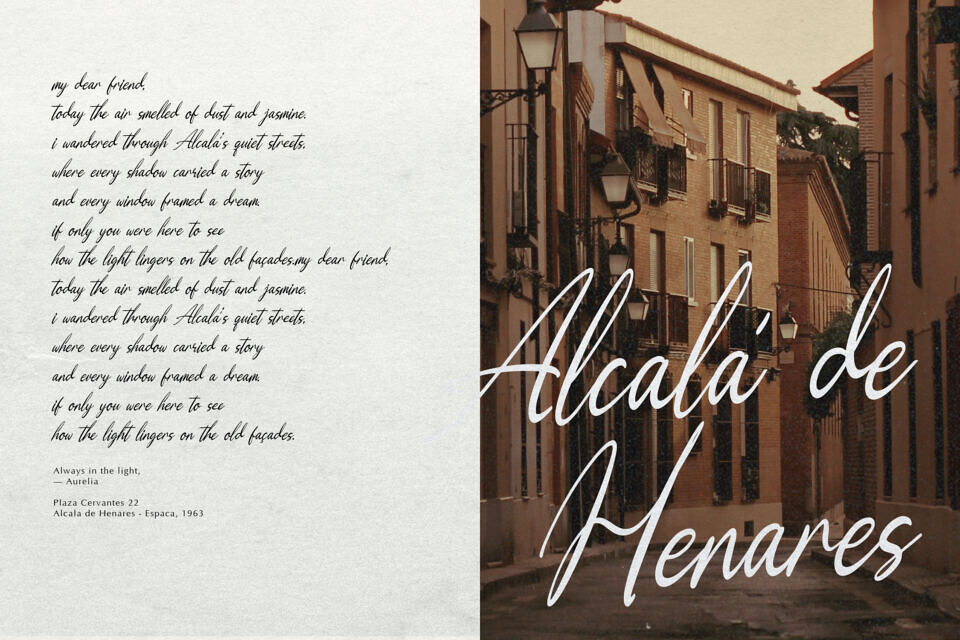 my dear friend,
today the air smelled of dust and jasmine.
i wandered through Alcalá's quiet streets,
where every shadow carried a story
and every window framed a dream.
if only you were here to see
how the light lingers on the old façades.my dear friend,
today the air smelled of dust and jasmine.
i wandered through Alcalá's quiet streets,
where every shadow carried a story
and every window framed a dream.
if only you were here to see
how the light lingers on the old façades.
Always in the light,
— Aurelia
Plaza Cervantes 22
Alcala de Henares - Espaca, 1963
Alcalá de
Henares